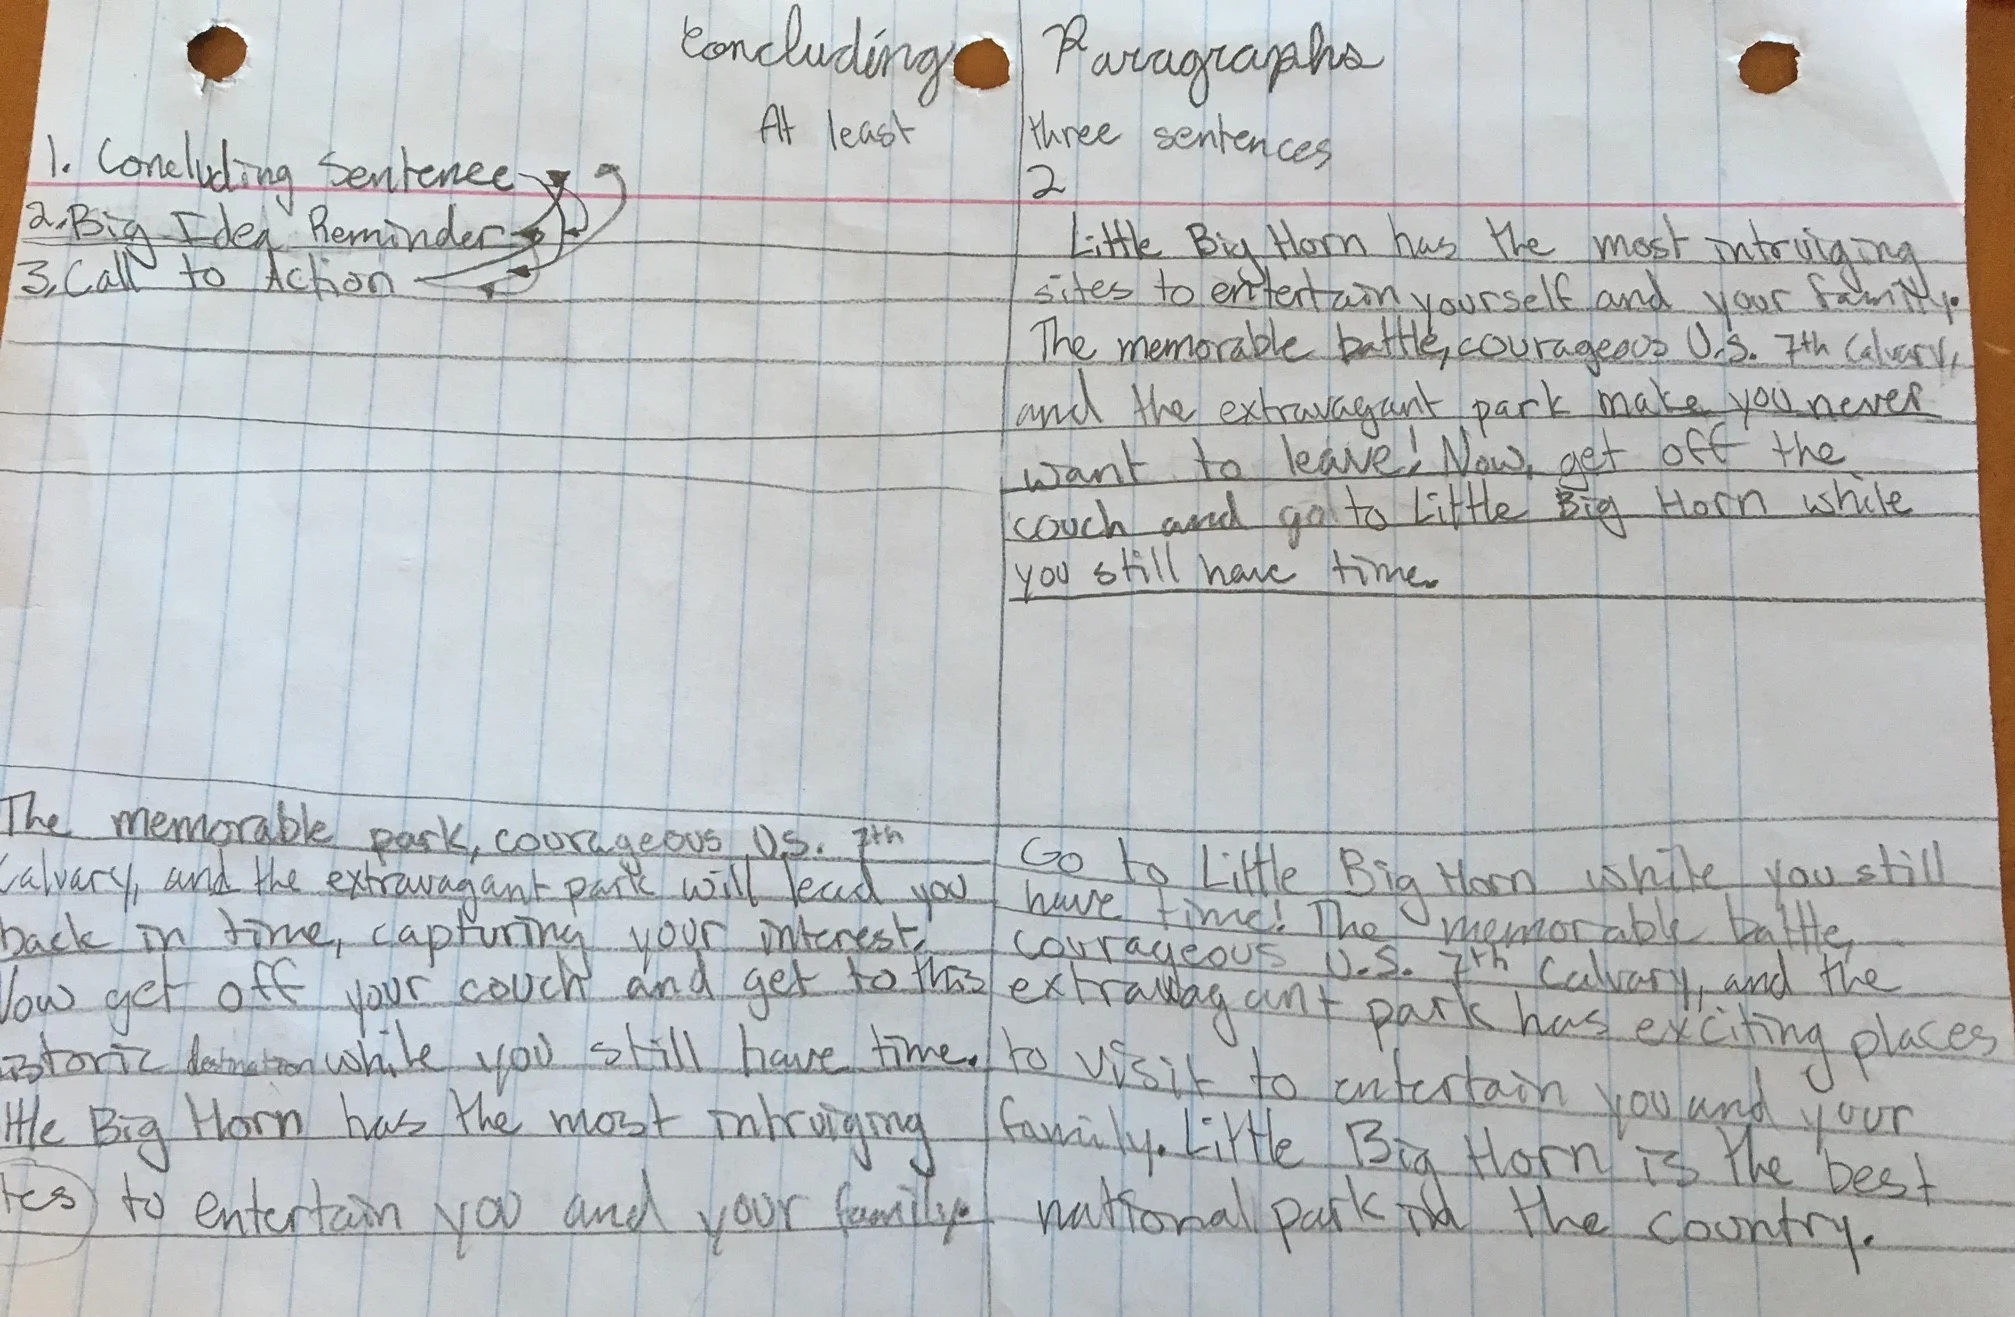 Concluding Paragraphs
At least three sentences
1. Concluding Sentence
2. Big Idea Reminder
3. Call to Action
2
Little Big Horn has the most intruiging
sites to entertain yourself and your family.
The memorable battle, courageous U.S. 7th Calvary,
and the extravagant park make you never
want to leave! Now, get off the
couch and go to Little Big Horn while
you still have time.
The memorable park, courageous U.S. 7th
Calvary, and the extravagant park will lead you
back in time, capturing your interest.
Now get off your couch and get to this
istoric destination while you still have time.
ittle Big Horn has the most intruiging
tes to entertain you and your family.
Go to Little Big Horn while you still
have time! The memorable battle,
courageous U.S. 7th Calvary, and the
extravagant park has exciting places
to visit to entertain you and your
family. Little Big Horn is the best
national park in the country.